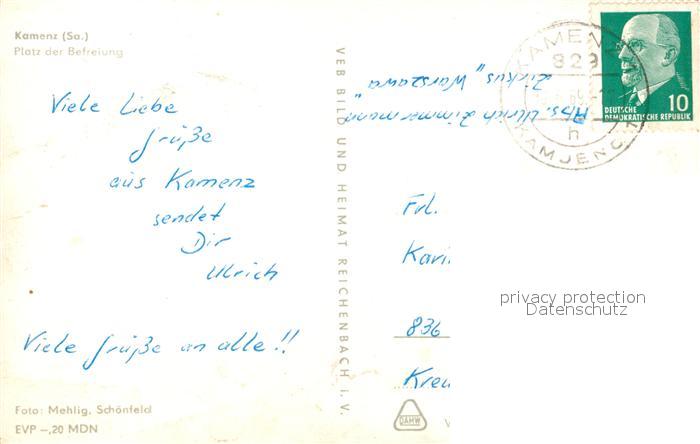 Kamenz (Sa.)
Platz der Befreiung
Viele Liebe
Grüße
aus Kamenz
sendet
Dir
Ulrich
Viele Grüße an alle!!
Foto: Mehlig, Schönfeld
EVP –,20 MDN
VEB BILD UND HEIMAT REICHENBACH i. V.
Abs. Ulrich Zimmermann
Zirkus "Warszawa"
KAMENZ
829
h
KAMJENC
10
DEUTSCHE
DEMOKRATISCHE REPUBLIK
Frl.
Kari
836
Kreu
privacy protection
Datenschutz
DAMW
V